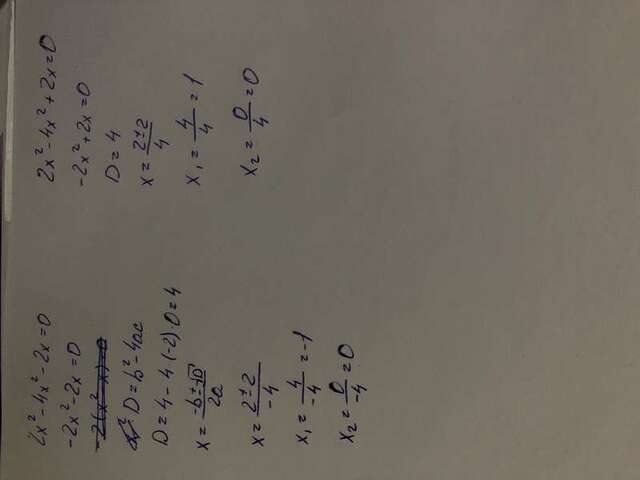 2x² - 4x² - 2x = 0
-2x² - 2x = 0
D = b² - 4ac
D = 4 - 4·(-2)·0 = 4
x = (-b ± √D) / 2a
x = (2 ± 2) / -4
x₁ = 4 / -4 = -1
x₂ = 0 / -4 = 0
2x² - 4x² + 2x = 0
-2x² + 2x = 0
D = 4
x = (2 ± 2) / 4
x₁ = 4 / 4 = 1
x₂ = 0 / 4 = 0